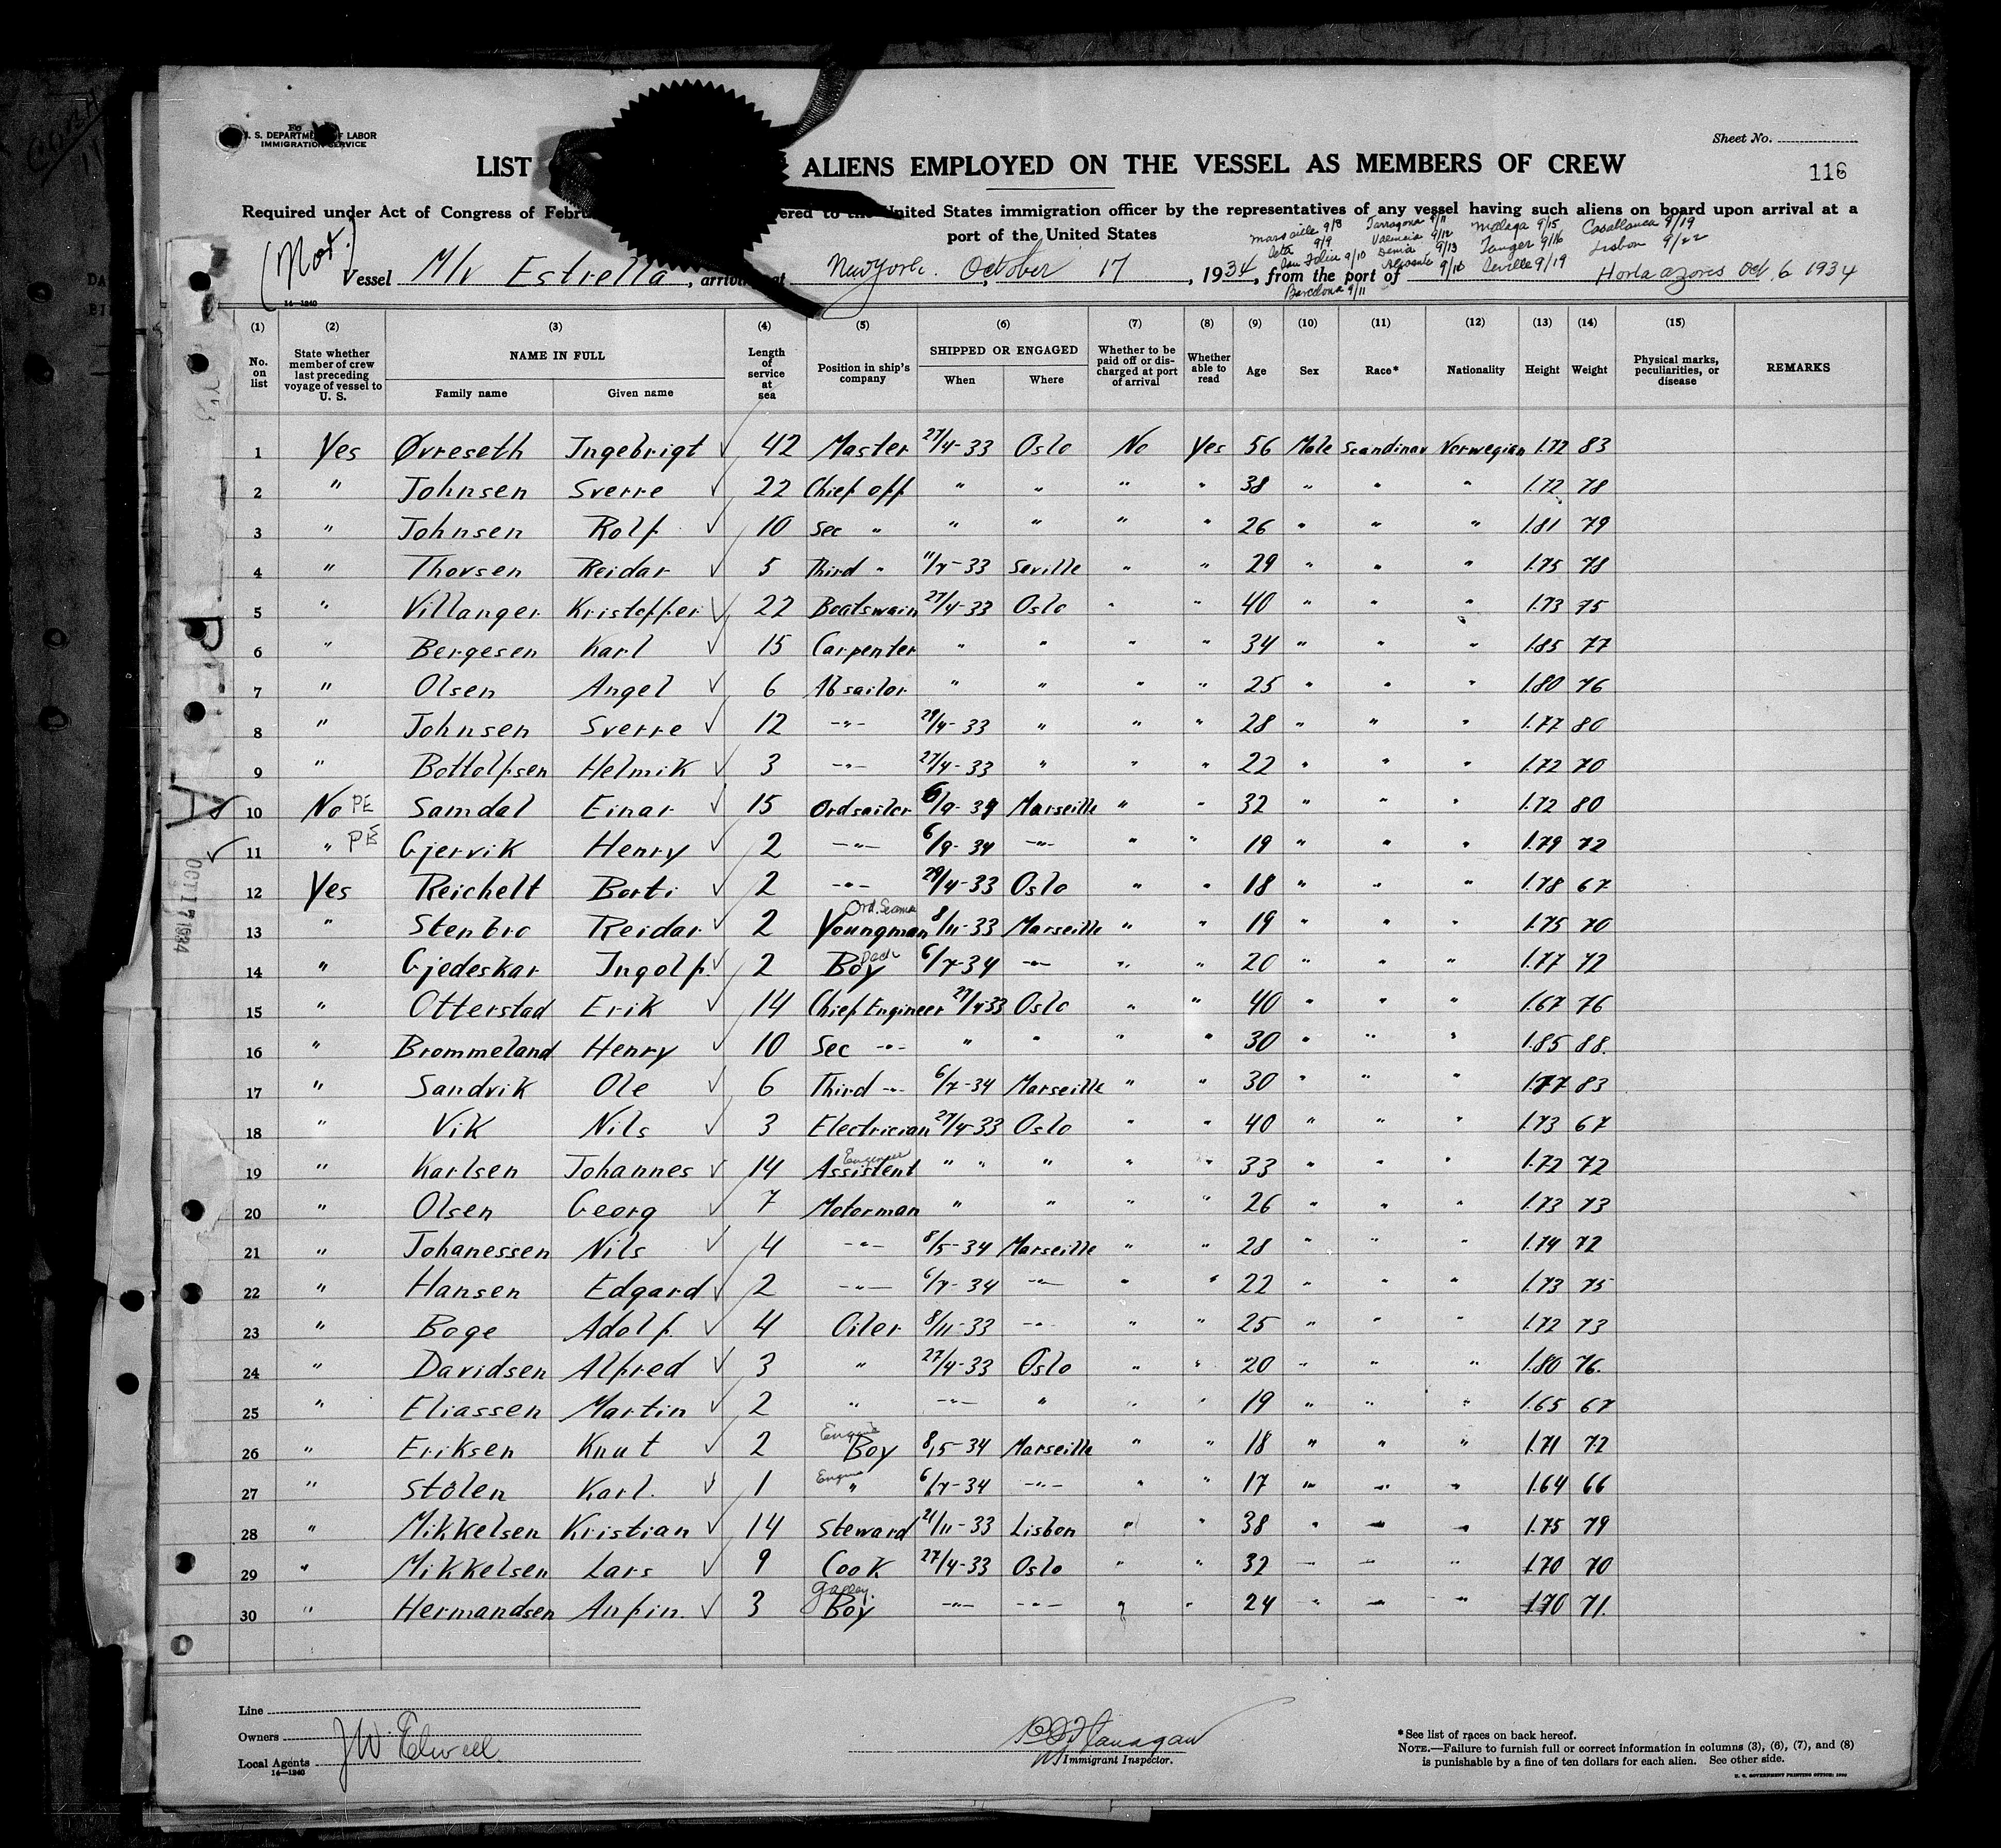 U. S. DEPARTMENT OF LABOR
IMMIGRATION SERVICE
Sheet No.
LIST ALIENS EMPLOYED ON THE VESSEL AS MEMBERS OF CREW
116
Required under Act of Congress of Febru ered to the United States immigration officer by the representatives of any vessel having such aliens on board upon arrival at a
port of the United States
Marseille 9/8 Tarragona 9/11 Malaga 9/15 Casablanca 9/19
9/9 Valencia 9/12 Tanger 9/16 Lisbon 9/22
San Feliu 9/10 Denia 9/13 Seville 9/19
Alicante 9/18
Barcelona 9/11
(Nor.) Vessel M/v Estrella, arriving at New York. October 17, 1934, from the port of Horta Azores Oct 6 1934
14—1240
(1) (2) (3) (4) (5) (6) (7) (8) (9) (10) (11) (12) (13) (14) (15)
No. on list | State whether member of crew last preceding voyage of vessel to U. S. | NAME IN FULL | Family name | Given name | Length of service at sea | Position in ship's company | SHIPPED OR ENGAGED | When | Where | Whether to be paid off or discharged at port of arrival | Whether able to read | Age | Sex | Race* | Nationality | Height | Weight | Physical marks, peculiarities, or disease | REMARKS
1 Yes Øvreseth Ingebrigt ✓ 42 Master 27/4-33 Oslo No Yes 56 Male Scandinav Norwegian 1.72 83
2 " Johnsen Sverre ✓ 22 Chief off " " " " 38 " " " 1.72 78
3 " Johnsen Rolf ✓ 10 Sec " " " " " 26 " " " 1.81 79
4 " Thorsen Reidar ✓ 5 Third " 11/7-33 Seville " " 29 " " " 1.75 78
5 " Villanger Kristoffer ✓ 22 Boatswain 27/4-33 Oslo " " 40 " " " 1.73 75
6 " Bergesen Karl ✓ 15 Carpenter " " " " 34 " " " 1.85 77
7 " Olsen Angel ✓ 6 Ab sailor " " " " 25 " " " 1.80 76
8 " Johnsen Sverre ✓ 12 -"- 29/4-33 " " " 28 " " " 1.77 80
9 " Bottolfsen Helmik ✓ 3 -"- 27/4-33 " " " 22 " " " 1.72 70
10 No PE Samdal Einar ✓ 15 Ordsailor 6/9-34 Marseille " " 32 " " " 1.72 80
11 " PE Gjervik Henry ✓ 2 -"- 6/9-34 -"- " " 19 " " " 1.79 72
12 Yes Reichelt Berti ✓ 2 -"- 29/4-33 Oslo " " 18 " " " 1.78 67
13 " Stenbro Reidar ✓ 2 Ord. Seaman Youngman 8/11-33 Marseille " " 19 " " " 1.75 70
14 " Gjedeskar Ingolf ✓ 2 Deck Boy 6/7-34 -"- " " 20 " " " 1.77 72
15 " Otterstad Erik ✓ 14 Chief Engineer 27/4-33 Oslo " " 40 " " " 1.67 76
16 " Brommeland Henry ✓ 10 Sec -"- " " " " 30 " " " 1.85 88.
17 " Sandvik Ole ✓ 6 Third -"- 6/7-34 Marseille " " 30 " " " 1.77 83
18 " Vik Nils ✓ 3 Electrician 27/4-33 Oslo " " 40 " " " 1.73 67
19 " Karlsen Johannes ✓ 14 Engineer Assistent " " " " " 33 " " " 1.72 72
20 " Olsen Georg ✓ 7 Motorman " " " " 26 " " " 1.73 73
21 " Johanessen Nils ✓ 4 -"- 8/5-34 Marseille " " 28 " " " 1.74 72
22 " Hansen Edgard ✓ 2 -"- 6/7-34 -"- " " 22 " " " 1.73 75
23 " Boge Adolf ✓ 4 Oiler 8/11-33 -"- " " 25 " " " 1.72 73
24 " Davidsen Alfred ✓ 3 " 27/4-33 Oslo " " 20 " " " 1.80 76.
25 " Eliassen Martin ✓ 2 " -"- " " " 19 " " " 1.65 67
26 " Eriksen Knut ✓ 2 Engine Boy 8/5-34 Marseille " " 18 " " " 1.71 72
27 " Stölen Karl. ✓ 1 Engine " 6/7-34 -"- " " 17 " " " 1.64 66
28 " Mikkelsen Kristian ✓ 14 Steward 21/11-33 Lisbon " " 38 " " " 1.75 79
29 " Mikkelsen Lars ✓ 9 Cook 27/4-33 Oslo " " 32 " " " 1.70 70
30 " Hermandsen Anfin. ✓ 3 Galley. Boy -"- -"- " " 24 " " " 1.70 71.
OCT 17 1934
Line
Owners
Local Agents J W. Elwell
14—1240
Flanagan
Immigrant Inspector.
*See list of races on back hereof.
NOTE.—Failure to furnish full or correct information in columns (3), (6), (7), and (8)
is punishable by a fine of ten dollars for each alien. See other side.
U. S. GOVERNMENT PRINTING OFFICE: 1930